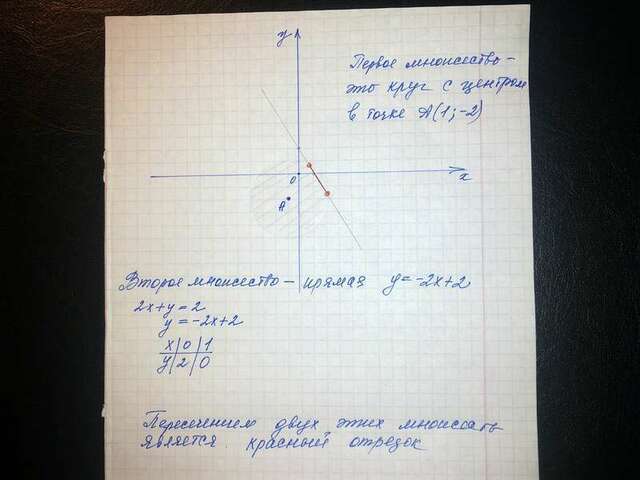 y
Первое множество -
это круг с центром
в точке A(1;-2)
0
x
A
Второе множество - прямая y=-2x+2
2x+y=2
y=-2x+2
x|0|1
y|2|0
Пересечением двух этих множеств
является красный отрезок